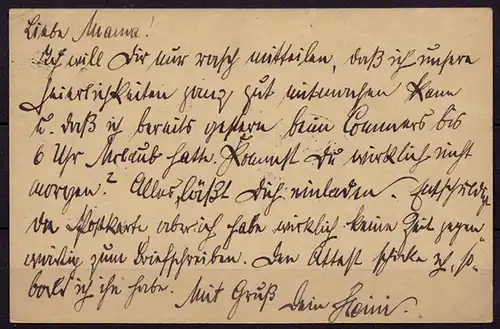 Liebe Mama!
Ich will Dir nur rasch mitteilen, daß ich unsere
Feierlichkeiten ganz gut mitmachen kann
u. daß ich bereits gestern beim Commers bis
6 Uhr Urlaub hatte. Kommst Du wirklich nicht
morgen? Alles läßt Dich einladen. Entschuldig
die Postkarte aber ich habe wirklich keine Zeit gegen=
wärtig zum Briefschreiben. Den Attest schicke ich, so=
bald ich ihn habe. Mit Gruß Dein Heini.